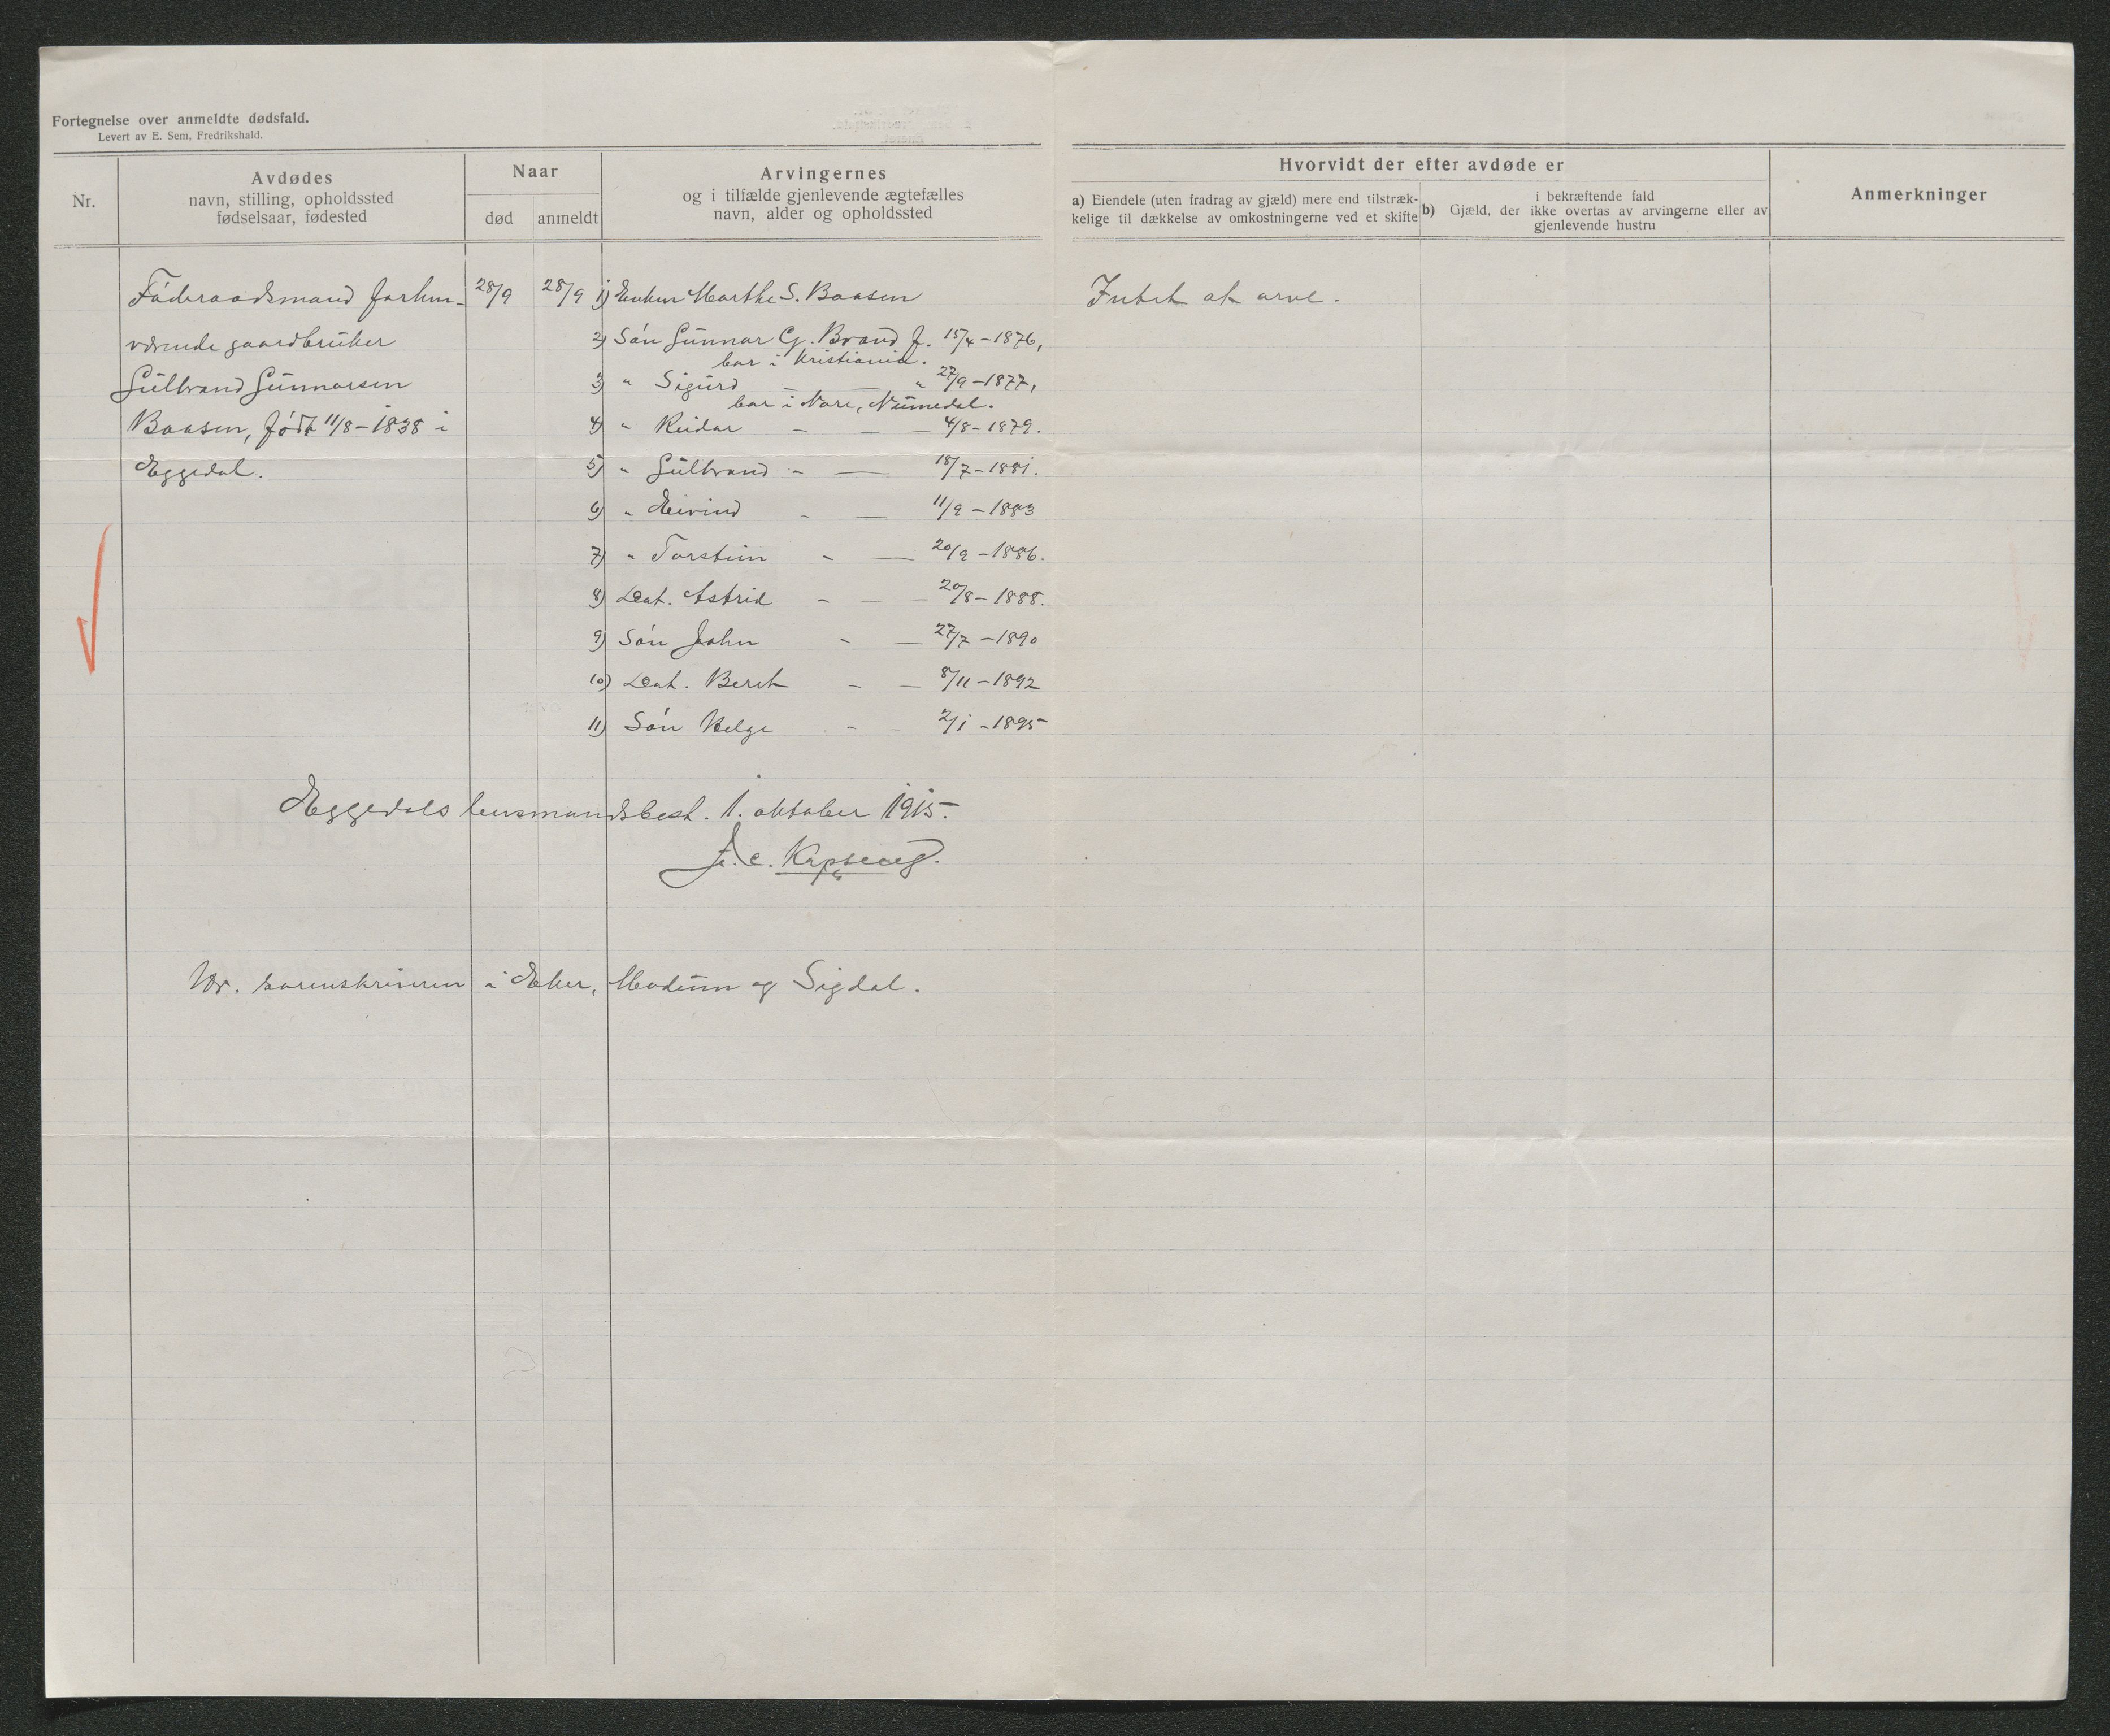 Fortegnelse over anmeldte dødsfald.
Levert av E. Sem, Fredrikshald.
Nr.
Avdødes
navn, stilling, opholdssted
fødselsaar, fødested
Naar
død
anmeldt
Arvingernes
og i tilfælde gjenlevende ægtefælles
navn, alder og opholdssted
Hvorvidt der efter avdøde er
a) Eiendele (uten fradrag av gjæld) mere end tilstræk-
kelige til dækkelse av omkostningerne ved et skifte
i bekræftende fald
b) Gjæld, der ikke overtas av arvingerne eller av
gjenlevende hustru
Anmerkninger
Föderaadsmand forhen-
værende gaardbruker
Gulbrand Gunnarsen
Baasen, født 11/8-1838 i
Eggedal.
28/9
28/9
1) Enken Marthe S. Baasen
2) Sön Gunnar G. Brand f. 15/4-1876,
bor i Kristiania.
3) " Sigurd — " 27/9-1877,
bor i Nore, Numedal.
4) " Reidar - — — 4/8-1879.
5) " Gulbrand - — 18/7-1881.
6) " Eivind - — 11/9-1883
7) " Torstein - — 20/9-1886.
8) Dat. Astrid - — — 20/8-1888.
9) Sön John - — 27/7-1890
10) Dat. Berit - — 8/11-1892
11) Sön Helge - - 2/1-1895
Intet at arve.
Eggedals lensmandsbest. 1. oktober 1915.
Hr. sorenskriveren i Eker, Modum og Sigdal.